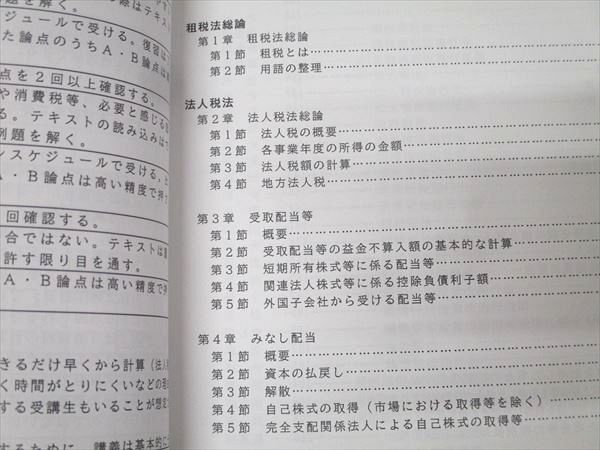 際はテキスト
題を解く。
ジュールで受ける。復習は
た論点のうちA・B論点は
点を2回以上確認する。
や消費税等、必要と感じる
る。テキストの読み込みは
例題を解く。
ンスケジュールで受ける。
A・B論点は高い精度で押
回確認する。
合ではない。テキストは
許す限り目を通す。
A・B論点は高い精度で
きるだけ早くから計算（法人
く時間がとりにくいなどの理
する受講生もいることが想定
するために、講義は基本的に
租税法総論
第1章 租税法総論
第1節 租税とは
第2節 用語の整理
法人税法
第2章 法人税法総論
第1節 法人税の概要
第2節 各事業年度の所得の金額
第3節 法人税額の計算
第4節 地方法人税
第3章 受取配当等
第1節 概要
第2節 受取配当等の益金不算入額の基本的な計算
第3節 短期所有株式等に係る配当等
第4節 関連法人株式等に係る控除負債利子額
第5節 外国子会社から受ける配当等
第4章 みなし配当
第1節 概要
第2節 資本の払戻し
第3節 解散
第4節 自己株式の取得（市場における取得等を除く）
第5節 完全支配関係法人による自己株式の取得等